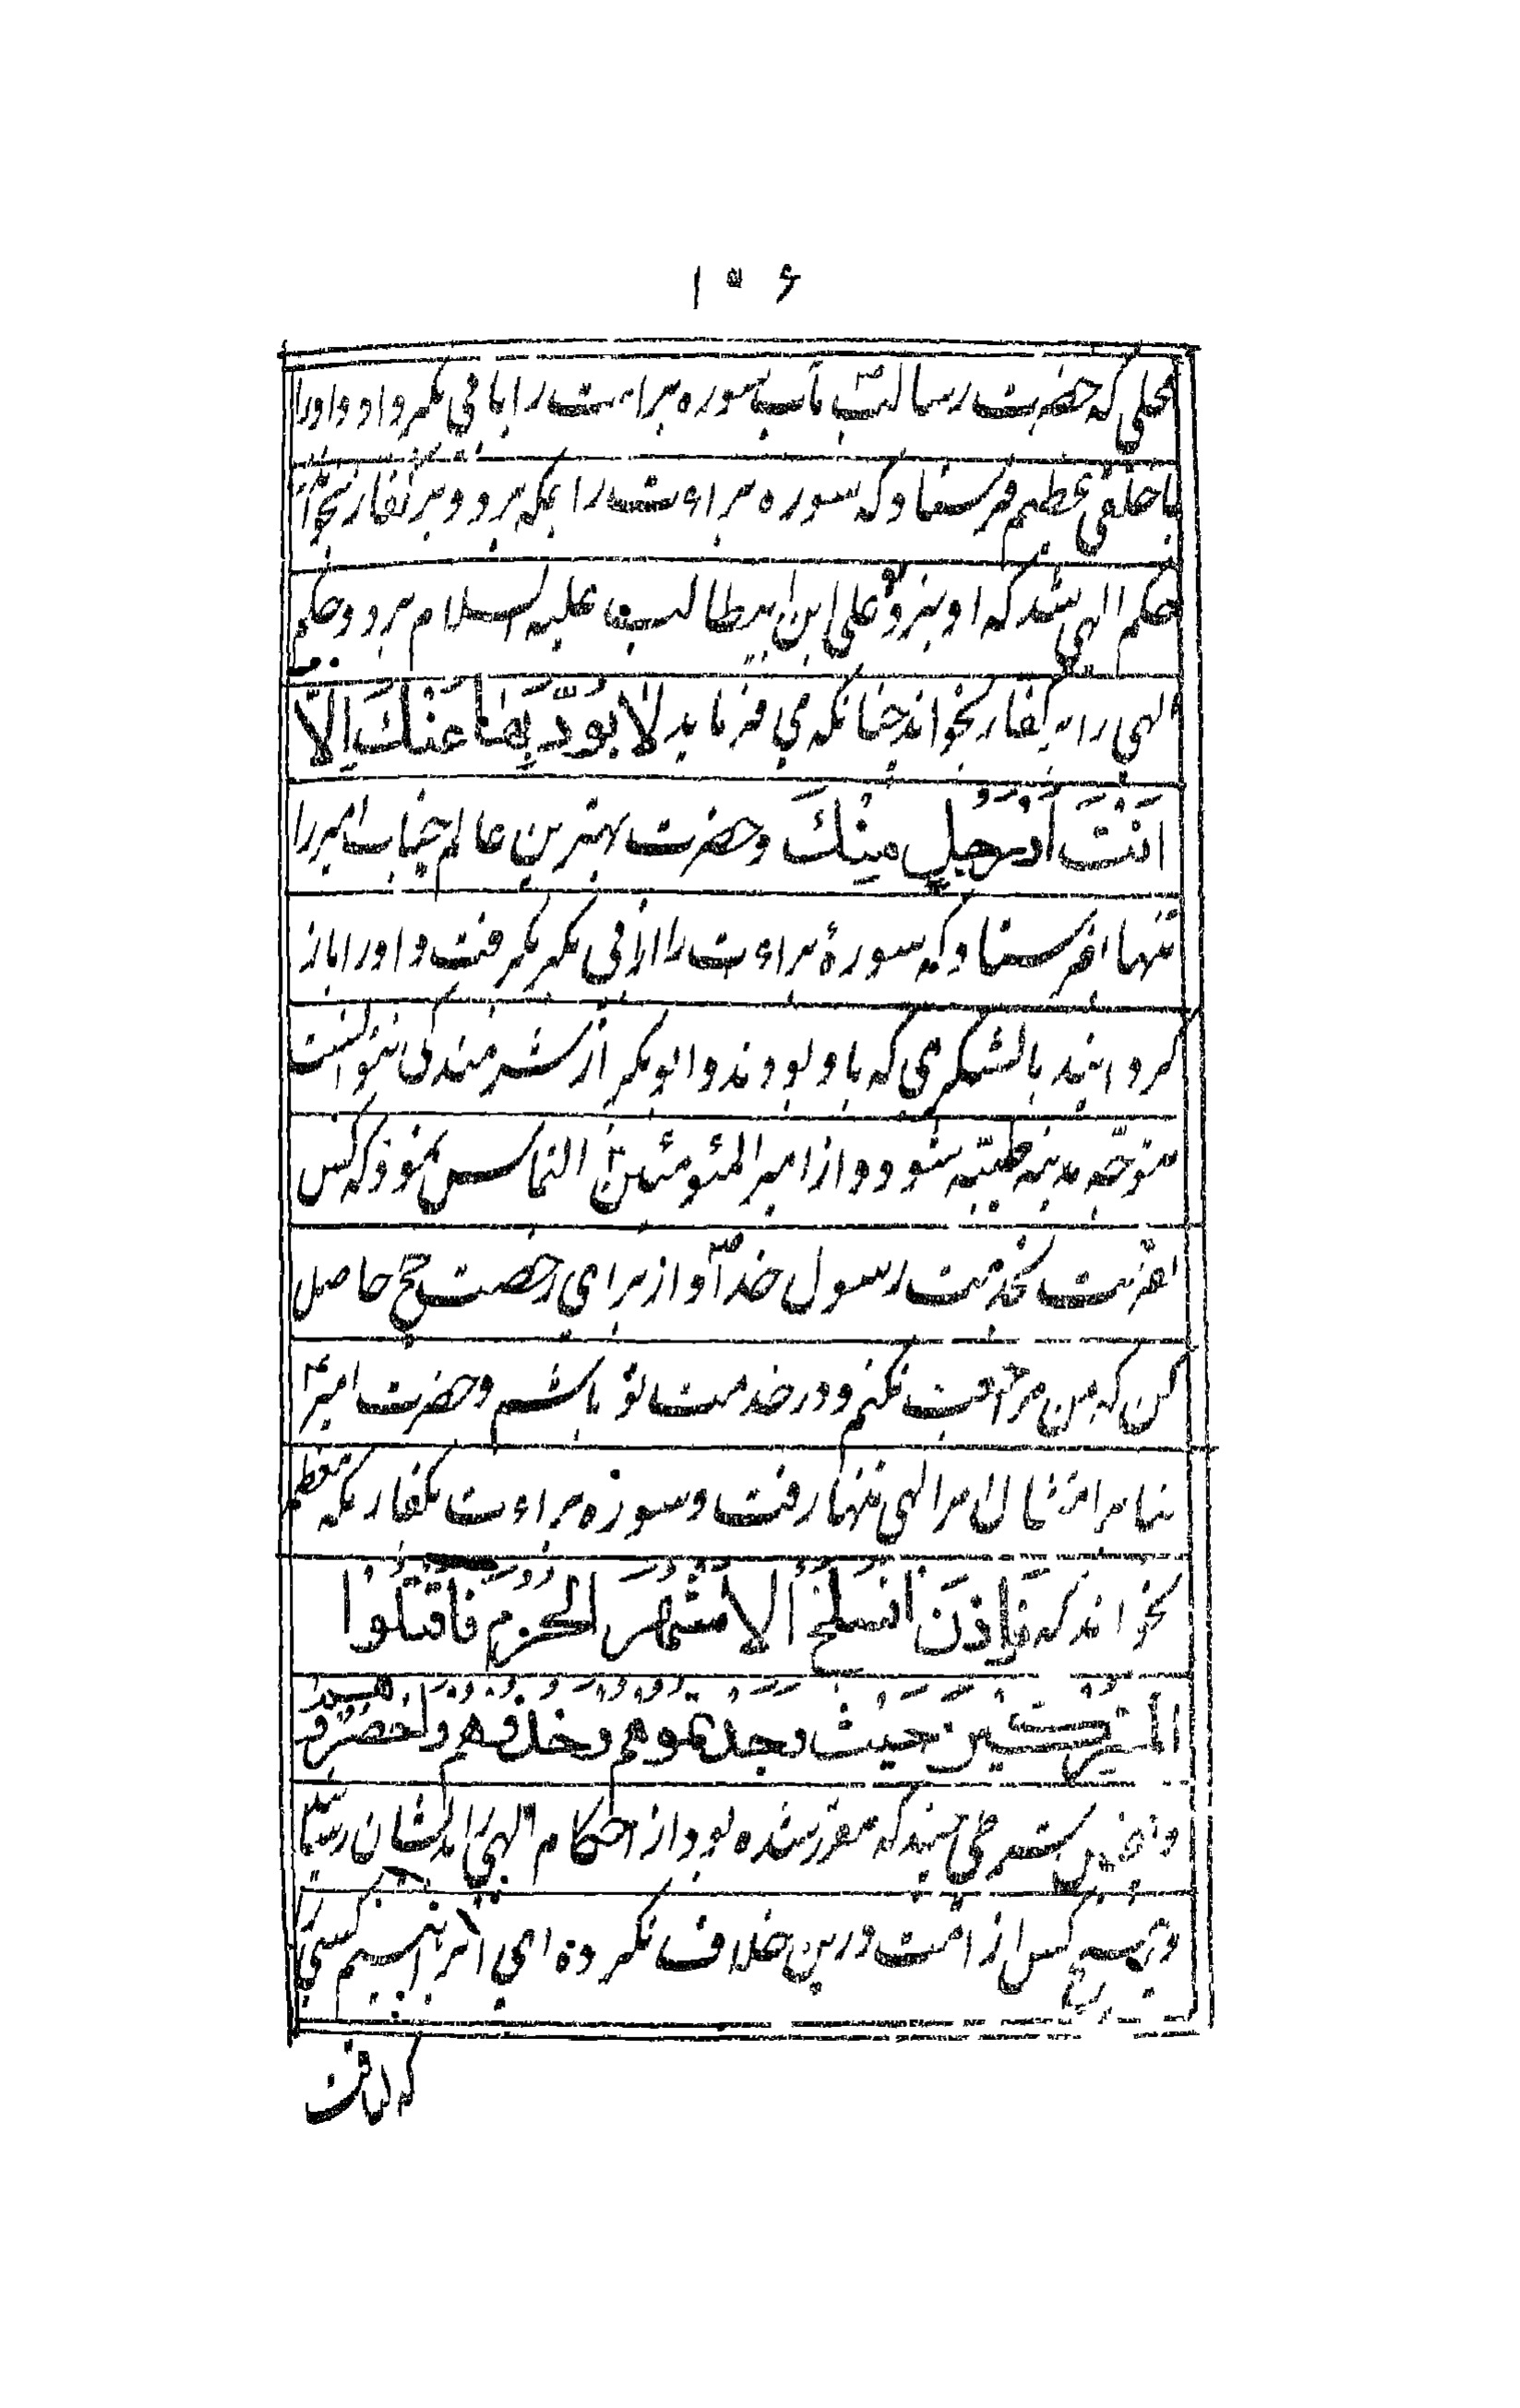 ۱۰۶
محلی که حضرت رسالت مآب سوره براءت را بابی بکر داد و اورا
با خلقی عظیم فرستاد که سوره براءت را بمکه برد و بر کفار بخواند
حکم الهی شد که او برود و علی ابن ابیطالب علیه السلام برد و حکم
الهی را به کفار بخواند چنانکه می فرماید لا یودّیها عنك الّا
انت او رجل منك و حضرت بهترین عالم جناب امیر را
تنها فرستاد که سورهٔ براءت را از ابی بکر بگرفت و اورا باز
کردانید بالشکری که با و بودند و ابوبکر از شرمندکی نتوانست
متوجّه مدینه طیّبه شود و از امیر المئومنین ع التماس نمود که کس
بفرست بخدمت رسول خدا ص و از برای رخصت حج حاصل
کن که من مراجعت نکنم و در خدمت تو باشم و حضرت امیر ع
بنابر امتثال امر الهی تنها رفت و سوره براءت بکفار مکه معظمه
بخواند که فاذن انسلخ الاشهر الحرم فاقتلوا
المشرکین حیث وجدتموهم وخذوهم واحصروهم
و شرطی چند که مقرر شده بود از احکام الهی بایشان رسانید
و هیچ کس از امت درین خلاف نکرده ای ابراهیم کسی را
که لیاقت